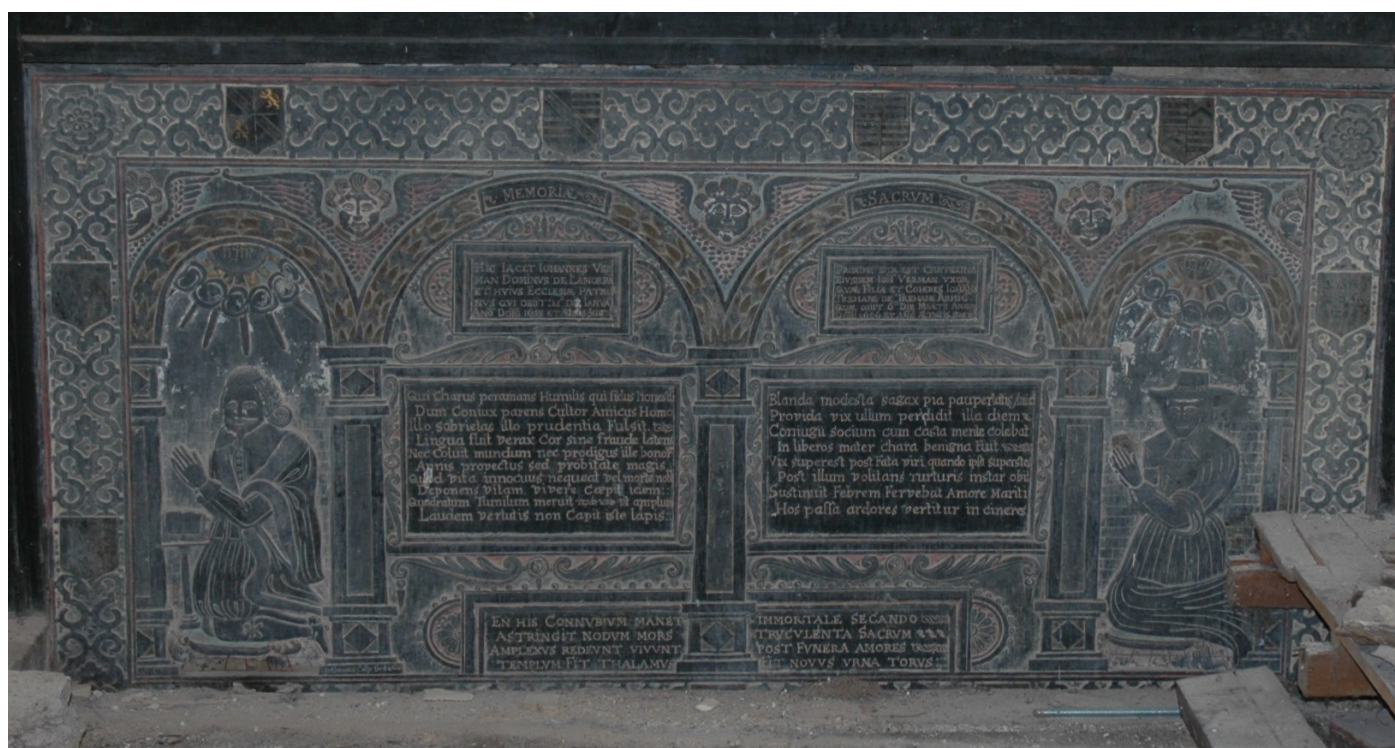 MEMORIÆ
SACRVM
HIC IACET IOHANNES
MAN DOMINVS DE
ET HVIVS ECCLESIÆ
NVS QVI OBIIT DE IANVA
ANO DOM
EIVSDEM VXOR
QVÆ FILIA ET COHÆRES
Qui Charus peramans Humilis qui fidus honesto
Dum Coniux parens Cultor Amicus Homo
Illo Gabrielas illo prudentia Fulsit
Lingua fuit verax Cor sine fraude latens
Nec Coluit mundum nec prodigus ille bonor
Annis provectus sed probitate magis
Quod vita innocuus nequeat vel morte
Deponens vitam vivere Cœpit idem
Quadratum Tumulum meruit ut amplum
Laudem vertutis non Capit iste lapis
Blanda modesta sagax pia pauperibus
Provida vix ullum perdidit illa diem
Coniugii socium cum casta mente colebat
In liberos mater chara benigna Fuit
Vix superest post Fata viri quando ipsa superstes
Post illum volitans turturis instar obit
Sustinuit Febrem Fervebat Amore Mariti
Hos passa ardores vertitur in cineres
EN HIS CONNVBIVM MANET IMMORTALE SECANDO
ASTRINGIT NODVM MORS TRVCVLENTA SACRVM
AMPLEXVS REDEVNT VIVVNT POST FVNERA AMORES
TEMPLVM FIT THALAMVS FIT NOVVS VRNA TORVS